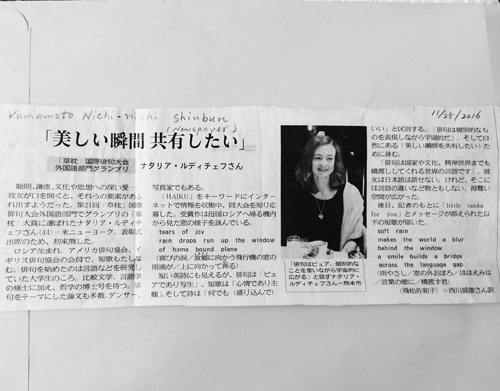 Kumamoto Nichi-nichi shinbun
(Newspaper)
11/25/2016
「美しい瞬間 共有したい」
「草枕」国際俳句大会
外国語部門グランプリ
ナタリア・ルディチェフさん
聡明、謙虚、文化や思想への深い愛―
彼女が口を開くと、それらの要素があふ
れ出すようだった。第21回「草枕」国際
俳句大会外国語部門でグランプリの「草
枕」大賞に選ばれたナタリア・ルディチ
ェフさん(44)=米ニューヨーク。表彰式
出席のため、初来熊した。
ロシア生まれ。アメリカ俳句協会、イ
ギリス俳句協会の会員で、短歌もたしな
む。俳句を始めたのは言語などを研究し
ていた大学生のころ。比較文学、言語学
の修士に加え、哲学の博士号を持つ。俳
句をテーマにした論文も多数。ダンサー、
写真家でもある。
「HAIKU」をキーワードにインター
ネットで情報を収集中、同大会を知り応
募した。受賞作は母国ロシアへ帰る機内
から見た窓の様子を詠んでいる。
tears of joy
rain drops run up the window
of home bound plane
(喜びの涙/故郷に向かう飛行機の窓の
雨滴が/上に向かって昇る)
短い英詩にも見えるが、俳句は「ピュ
アであり写生」、短歌は「心情であり主
観」、そして詩は「何でも(盛り込んで)
「俳句はピュア。個別的な
ことを言いながら宇宙的に
広がる」と話すナタリア・
ルディチェフさん=熊本市
いい」と区別する。「俳句は個別的なも
のを表現しながら宇宙的だ」。そして自
然にある「美しい瞬間を共有したい」た
めに詠む。
「俳句は国家や文化、精神世界までも
橋渡ししてくれる世界の言語です」。彼
女は日本語は話せない。けれど、そこに
は言語の違いなど物ともしない、得難い
空間が広がった。
後日、記者のもとに「little tanka
for you」とメッセージが添えられた以
下の短歌が届いた。
soft rain
makes the world a blur
behind the window
a smile builds a bridge
across the language gap
(雨やさし/窓の外おぼろ/ほほえみは
/言葉の壁に/橋渡す君)
(飛松佐和子)=西川盛雄さん訳